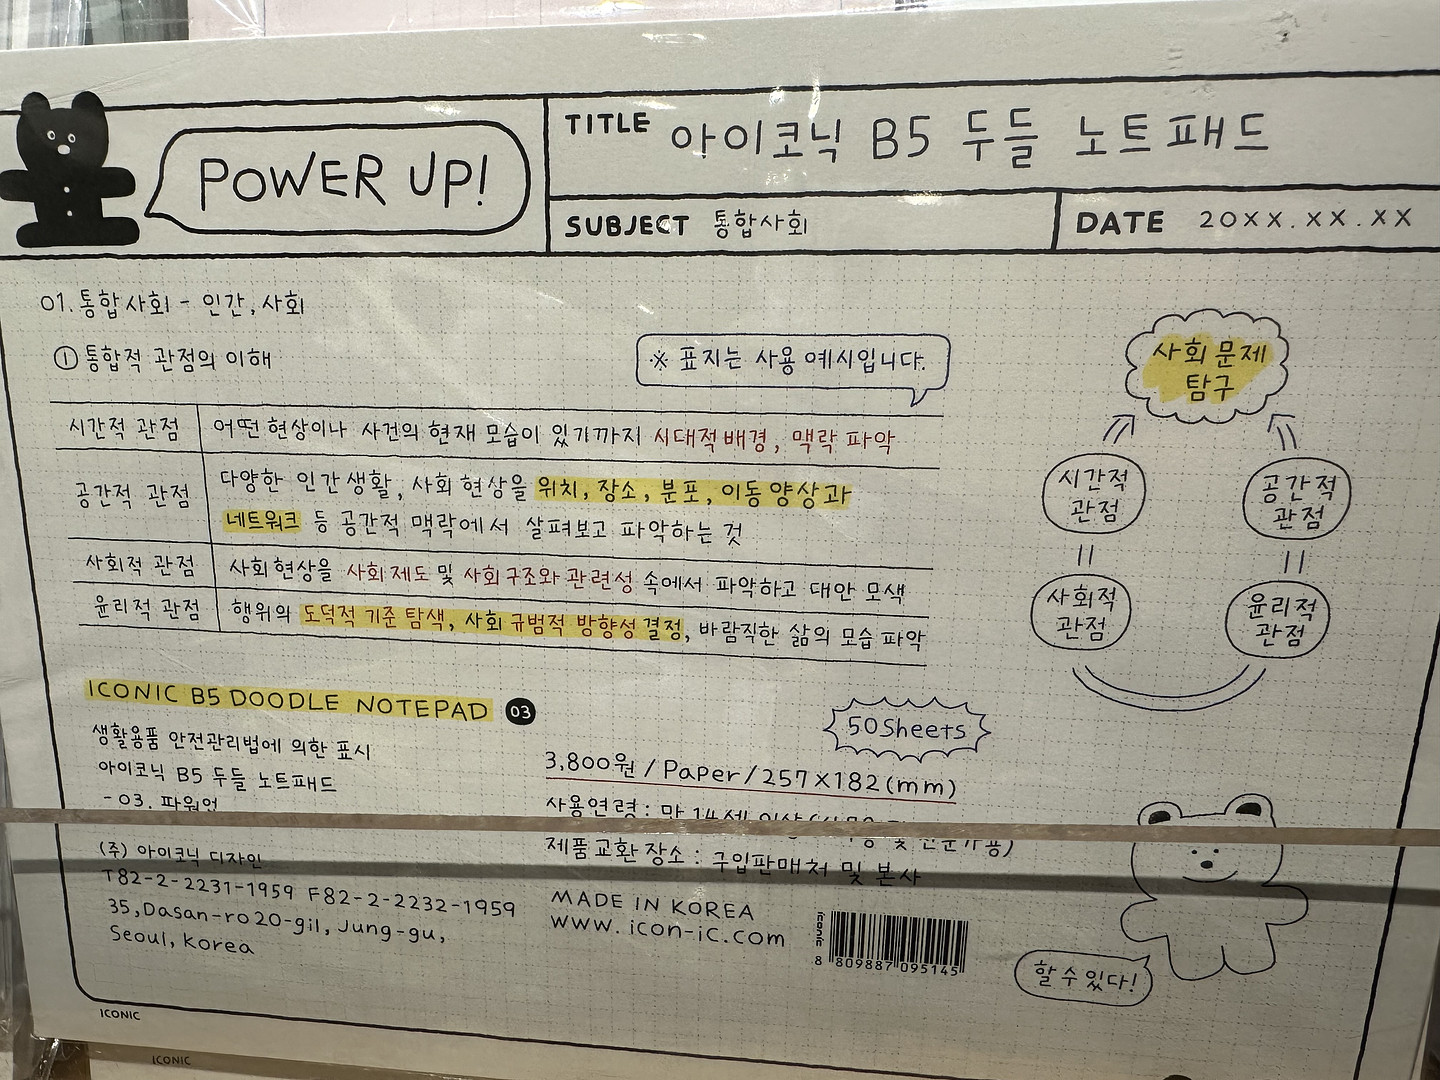 POWER UP!
TITLE 아이코닉 B5 두들 노트패드
SUBJECT 통합사회
DATE 20XX.XX.XX
01. 통합사회 - 인간, 사회
① 통합적 관점의 이해
※ 표지는 사용 예시입니다.
시간적 관점 어떤 현상이나 사건의 현재 모습이 있기까지 시대적 배경, 맥락 파악
공간적 관점 다양한 인간 생활, 사회 현상을 위치, 장소, 분포, 이동 양상과
네트워크 등 공간적 맥락에서 살펴보고 파악하는 것
사회적 관점 사회 현상을 사회 제도 및 사회 구조와 관련성 속에서 파악하고 대안 모색
윤리적 관점 행위의 도덕적 기준 탐색, 사회 규범적 방향성 결정, 바람직한 삶의 모습 파악
사회 문제
탐구
시간적
관점
공간적
관점
사회적
관점
윤리적
관점
ICONIC B5 DOODLE NOTEPAD 03
생활용품 안전관리법에 의한 표시
아이코닉 B5 두들 노트패드
- 03. 파워업
(주) 아이코닉 디자인
T82-2-2231-1959 F82-2-2232-1959
35, Dasan-ro 20-gil, Jung-gu,
Seoul, Korea
50Sheets
3,800원 / Paper / 257X182(mm)
사용연령 : 만 14세 이상
제품교환 장소 : 구입판매처 및 본사
MADE IN KOREA
www.icon-ic.com
iconic
8 809887 095145
할 수 있다!
ICONIC
ICONIC